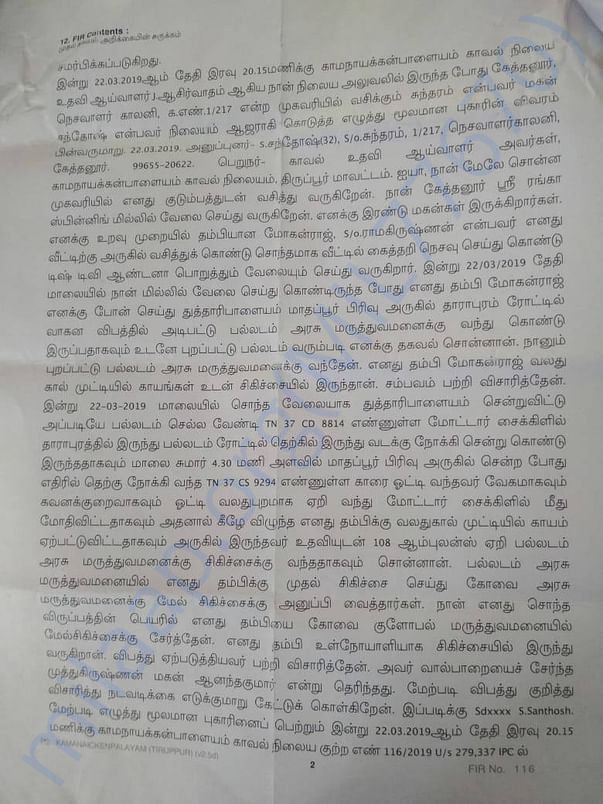 12. FIR Contents :
முதல் தகவல் அறிக்கையின் சுருக்கம்
சமர்பிக்கப்படுகிறது.
இன்று 22.03.2019ஆம் தேதி இரவு 20.15மணிக்கு காமநாயக்கன்பாளையம் காவல் நிலைய
உதவி ஆய்வாளர்J.ஆசிர்வாதம் ஆகிய நான் நிலைய அலுவலில் இருந்த போது கேத்தனூர்,
நெசவாளர் காலனி, க.எண்.1/217 என்ற முகவரியில் வசிக்கும் சுந்தரம் என்பவர் மகன்
சந்தோஷ் என்பவர் நிலையம் ஆஜராகி கொடுத்த எழுத்து மூலமான புகாரின் விவரம்
பின்வருமாறு. 22.03.2019. அனுப்புனர்- S.சந்தோஷ்(32), S/o.சுந்தரம், 1/217, நெசவாளர்காலனி,
கேத்தனூர். 99655-20622. பெறுநர்- காவல் உதவி ஆய்வாளர் அவர்கள்,
காமநாயக்கன்பாளையம் காவல் நிலையம், திருப்பூர் மாவட்டம். ஐயா, நான் மேலே சொன்ன
முகவரியில் எனது குடும்பத்துடன் வசித்து வருகிறேன். நான் கேத்தனூர் ஸ்ரீ ரங்கா
ஸ்பின்னிங் மில்லில் வேலை செய்து வருகிறேன். எனக்கு இரண்டு மகன்கள் இருக்கிறார்கள்.
எனக்கு உறவு முறையில் தம்பியான மோகன்ராஜ், S/o.ராமகிருஷ்ணன் என்பவர் எனது
வீட்டிற்கு அருகில் வசித்துக் கொண்டு சொந்தமாக வீட்டில் கைத்தறி நெசவு செய்து கொண்டு
டிஷ் டிவி ஆண்டனா பொறுத்தும் வேலையும் செய்து வருகிறார். இன்று 22/03/2019 தேதி
மாலையில் நான் மில்லில் வேலை செய்து கொண்டிருந்த போது எனது தம்பி மோகன்ராஜ்
எனக்கு போன் செய்து துத்தாரிபாளையம் மாதப்பூர் பிரிவு அருகில் தாராபுரம் ரோட்டில்
வாகன விபத்தில் அடிபட்டு பல்லடம் அரசு மருத்துவமனைக்கு வந்து கொண்டு
இருப்பதாகவும் உடனே புறப்பட்டு பல்லடம் வரும்படி எனக்கு தகவல் சொன்னான். நானும்
புறப்பட்டு பல்லடம் அரசு மருத்துவமனைக்கு வந்தேன். எனது தம்பி மோகன்ராஜ் வலது
கால் முட்டியில் காயங்கள் உடன் சிகிச்சையில் இருந்தான். சம்பவம் பற்றி விசாரித்தேன்.
இன்று 22-03-2019 மாலையில் சொந்த வேலையாக துத்தாரிபாளையம் சென்றுவிட்டு
அப்படியே பல்லடம் செல்ல வேண்டி TN 37 CD 8814 எண்ணுள்ள மோட்டார் சைக்கிளில்
தாராபுரத்தில் இருந்து பல்லடம் ரோட்டில் தெற்கில் இருந்து வடக்கு நோக்கி சென்று கொண்டு
இருந்ததாகவும் மாலை சுமார் 4.30 மணி அளவில் மாதப்பூர் பிரிவு அருகில் சென்ற போது
எதிரில் தெற்கு நோக்கி வந்த TN 37 CS 9294 எண்ணுள்ள காரை ஓட்டி வந்தவர் வேகமாகவும்
கவனக்குறைவாகவும் ஓட்டி வலதுபுறமாக ஏறி வந்து மோட்டார் சைக்கிளில் மீது
மோதிவிட்டதாகவும் அதனால் கீழே விழுந்த எனது தம்பிக்கு வலதுகால் முட்டியில் காயம்
ஏற்பட்டுவிட்டதாகவும் அருகில் இருந்தவர் உதவியுடன் 108 ஆம்புலன்ஸ் ஏறி பல்லடம்
அரசு மருத்துவமனைக்கு சிகிச்சைக்கு வந்ததாகவும் சொன்னான். பல்லடம் அரசு
மருத்துவமனையில் எனது தம்பிக்கு முதல் சிகிச்சை செய்து கோவை அரசு
மருத்துவமனைக்கு மேல் சிகிச்சைக்கு அனுப்பி வைத்தார்கள். நான் எனது சொந்த
விருப்பத்தின் பெயரில் எனது தம்பியை கோவை குளோபல் மருத்துவமனையில்
மேல்சிகிச்சைக்கு சேர்த்தேன். எனது தம்பி உள்நோயாளியாக சிகிச்சையில் இருந்து
வருகிறான். விபத்து ஏற்படுத்தியவர் பற்றி விசாரித்தேன். அவர் வால்பாறையைச் சேர்ந்த
முத்துகிருஷ்ணன் மகன் ஆனந்தகுமார் என்று தெரிந்தது. மேற்படி விபத்து குறித்து
விசாரித்து நடவடிக்கை எடுக்குமாறு கேட்டுக் கொள்கிறேன். இப்படிக்கு Sdxxxx S.Santhosh.
மேற்படி எழுத்து மூலமான புகாரினைப் பெற்றும் இன்று 22.03.2019ஆம் தேதி இரவு 20.15
மணிக்கு காமநாயக்கன்பாளையம் காவல் நிலைய குற்ற எண் 116/2019 U/s 279,337 IPC ல்
KAMANAICKENPALAYAM (TIRUPPUR) (v2.5d)
2
FIR No. 116